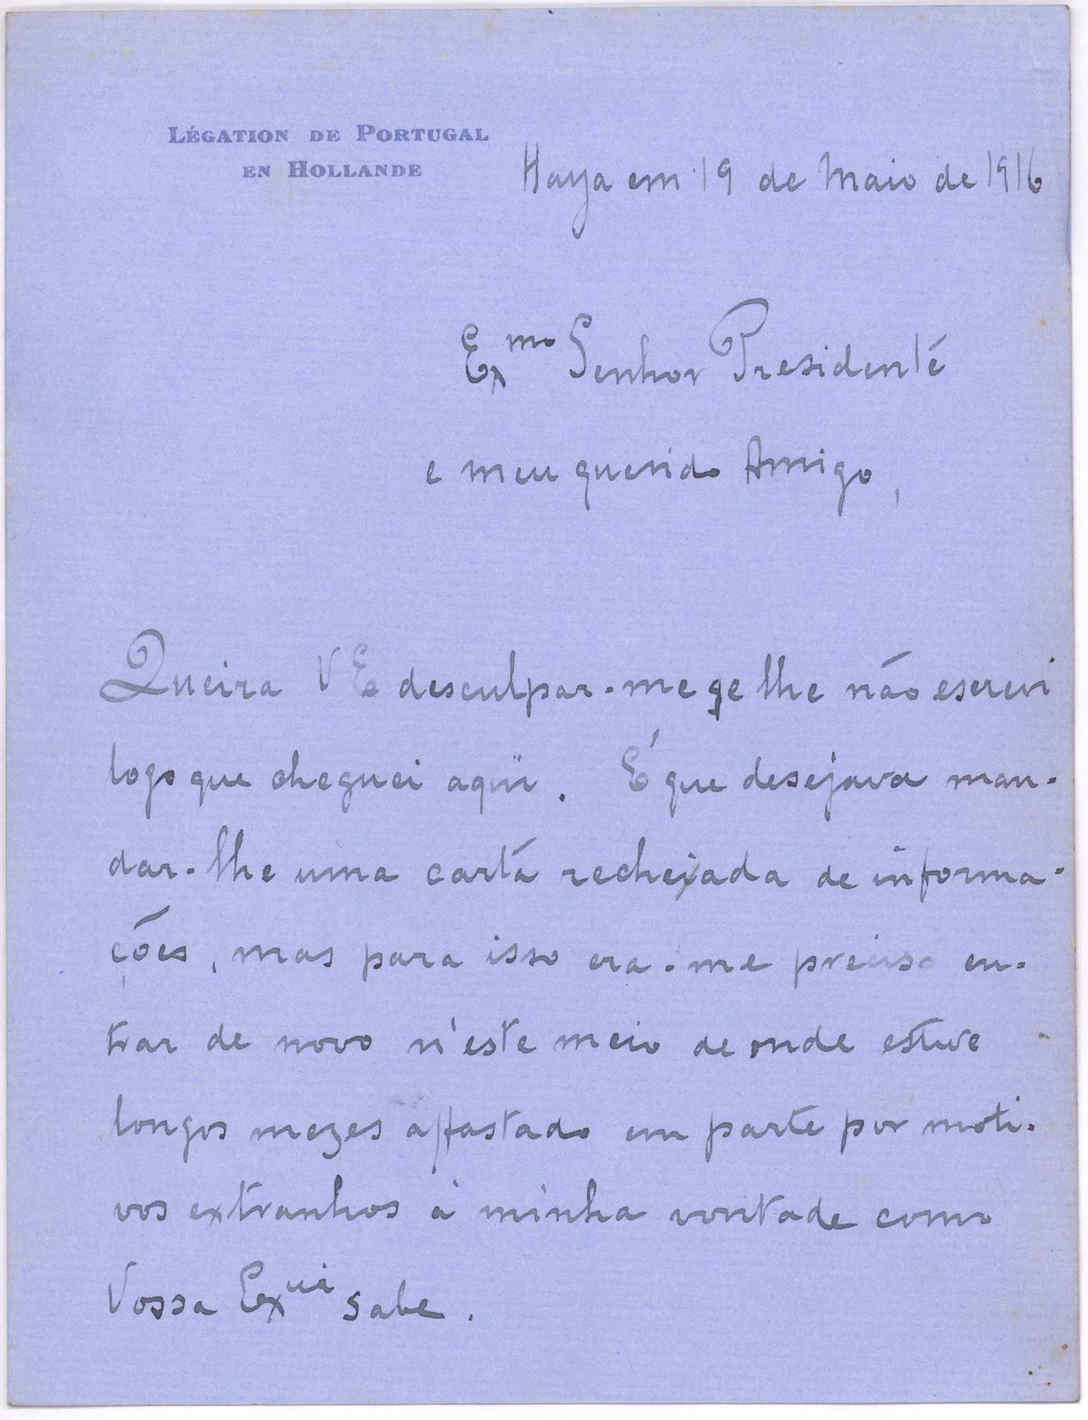 LÉGATION DE PORTUGAL
EN HOLLANDE
Haya em 19 de Maio de 1916
Exmo Senhor Presidente
e meu querido Amigo,
Queira V Ea desculpar-me qe lhe não escrevi
logo que cheguei aqui. É que desejava man-
dar-lhe uma carta recheiada de informa-
ções, mas para isso era-me preciso en-
trar de novo n'este meio de onde estive
longos mezes affastado em parte por moti-
vos extranhos á minha vontade como
Vossa Excia sabe.